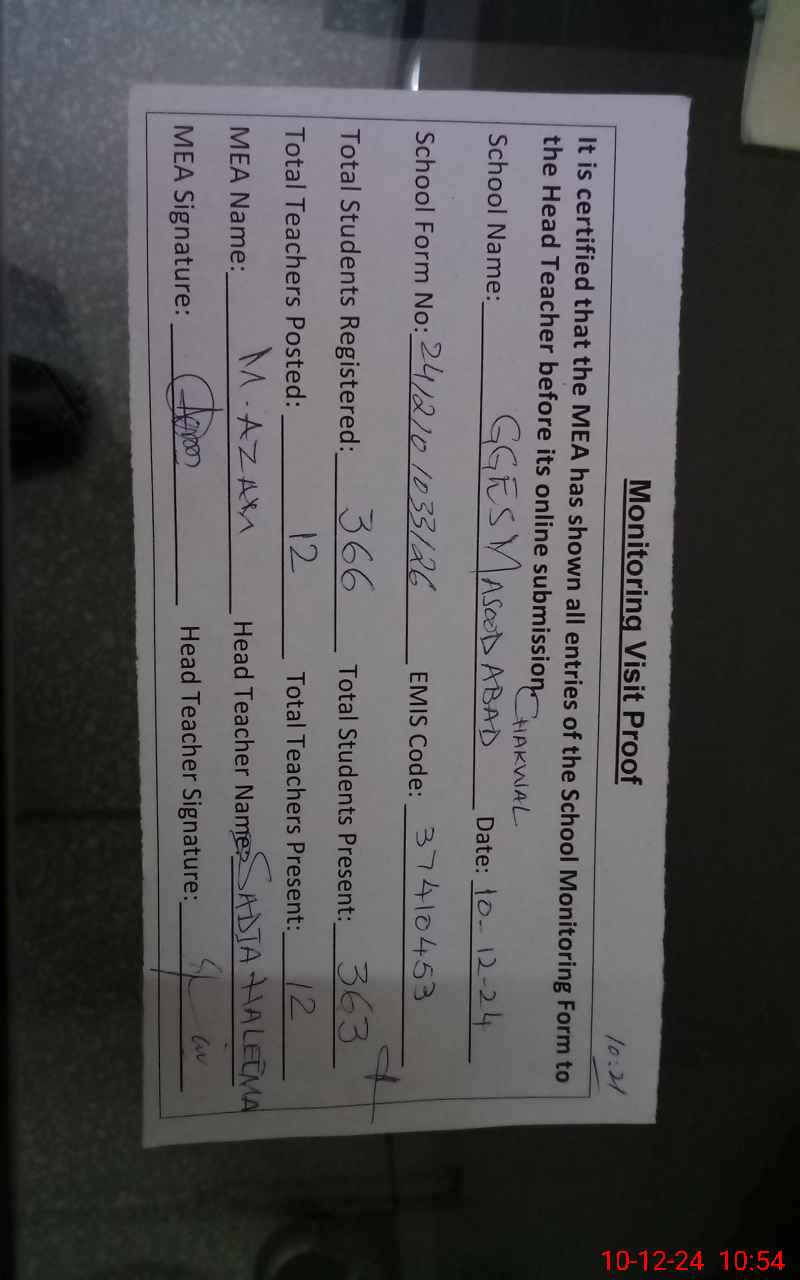 Monitoring Visit Proof
10:21
It is certified that the MEA has shown all entries of the School Monitoring Form to
the Head Teacher before its online submission.
School Name: GGES MASOOD ABAD CHAKWAL Date: 10-12-24
School Form No: 2412101033126 EMIS Code: 37410453
Total Students Registered: 366 Total Students Present: 363
Total Teachers Posted: 12 Total Teachers Present: 12
MEA Name: M. AZAM Head Teacher Name: SADIA HALEEMA
MEA Signature: Head Teacher Signature:
10-12-24 10:54